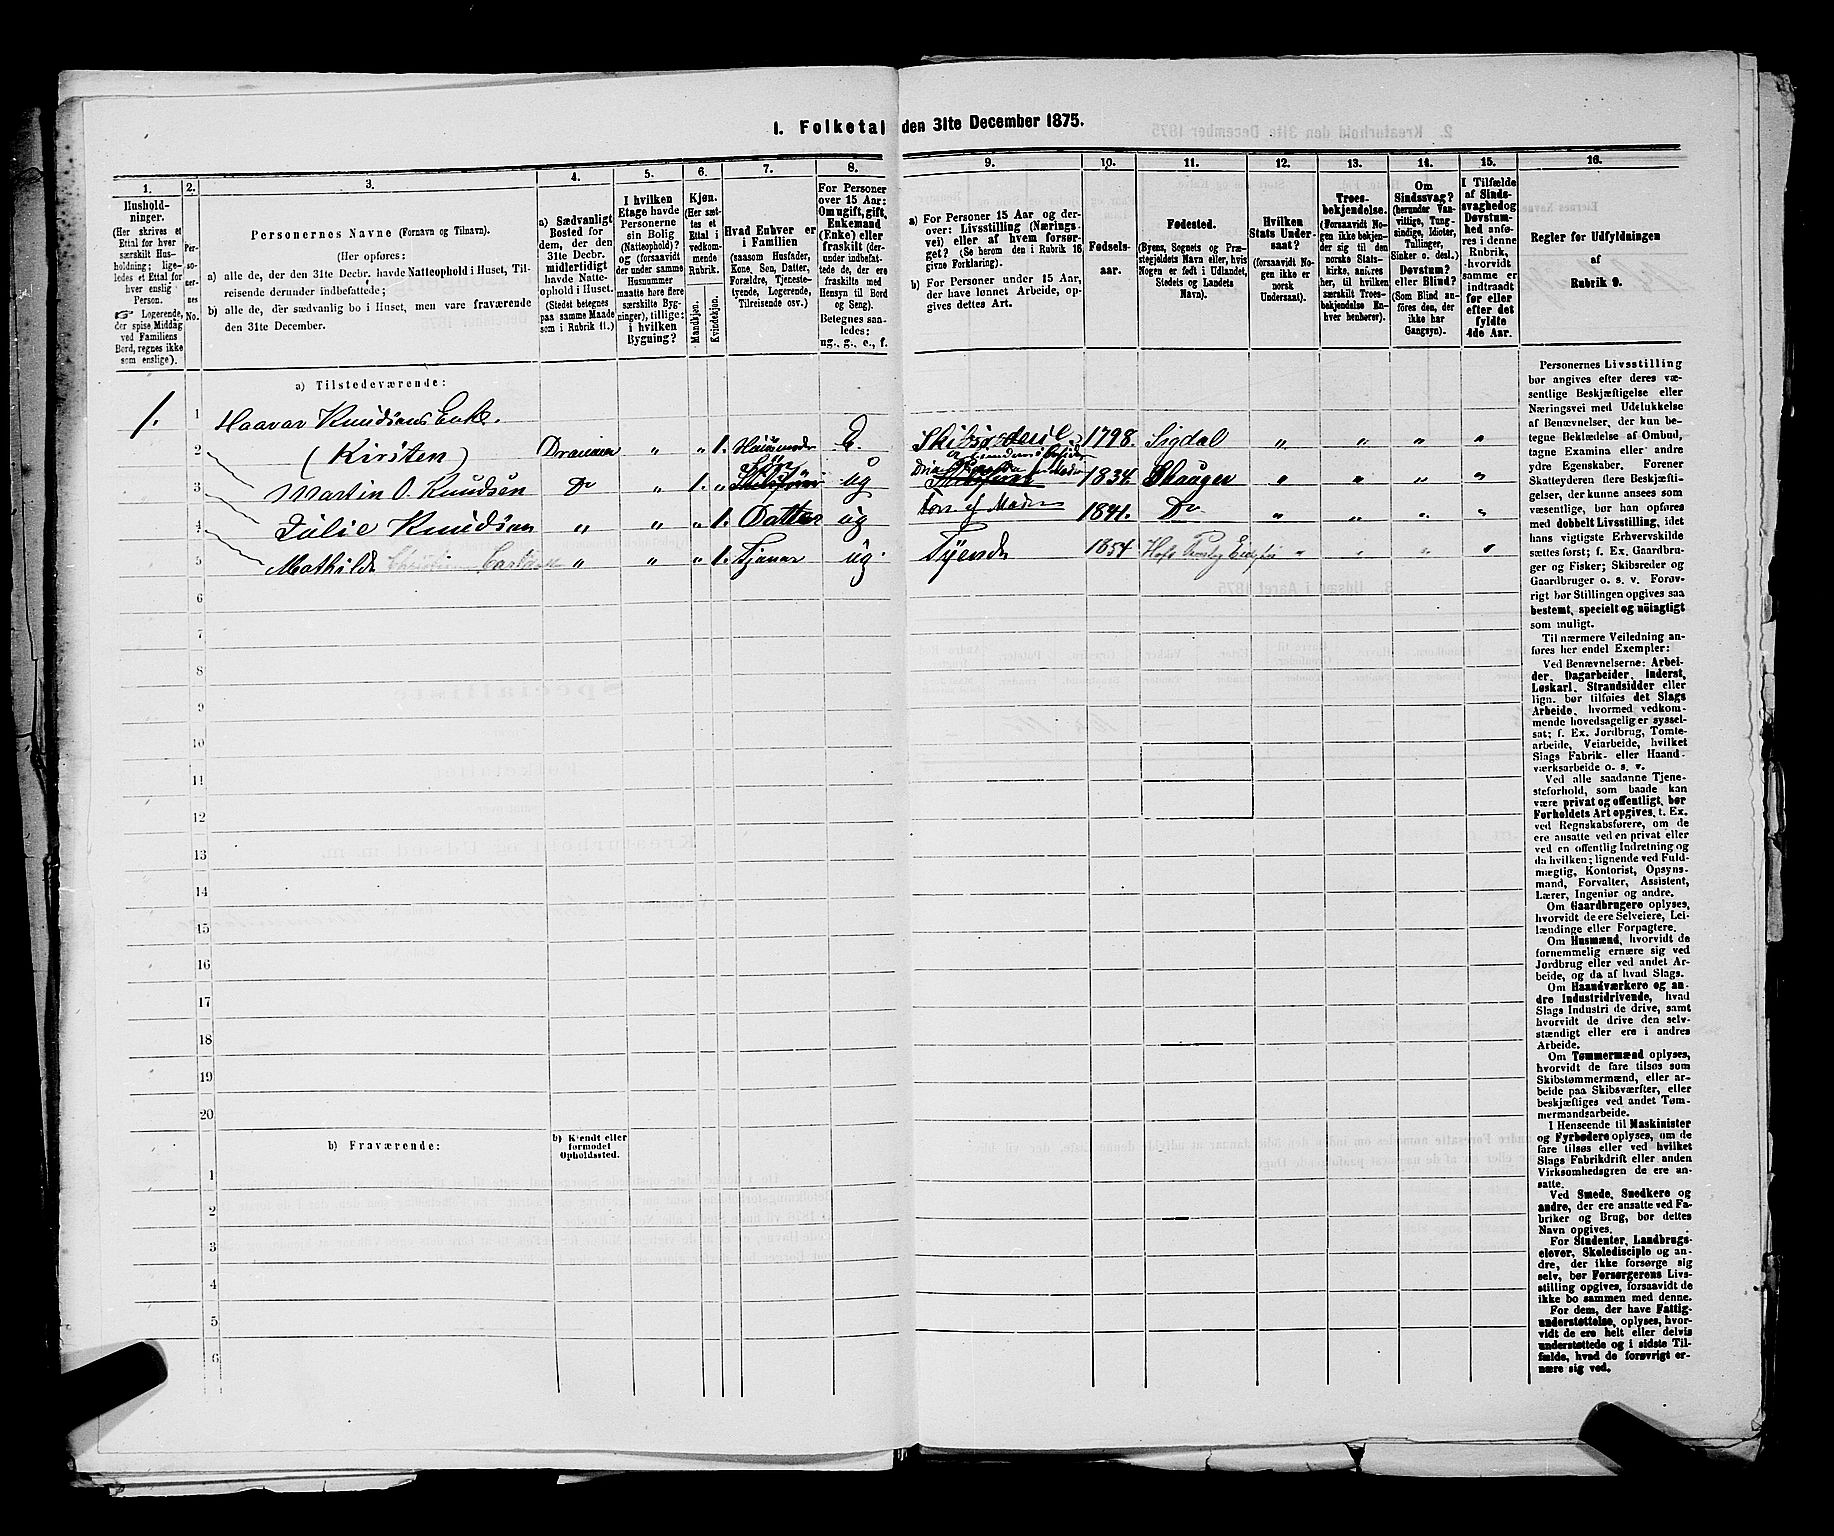 I. Folketal den 31te December 1875.
1. 2. 3. 4. 5. 6. 7. 8. 9. 10. 11. 12. 13. 14. 15. 16.
Hushold-
ninger.
(Her skrives et
Ettal for hver
særskilt Hus-
holdning; lige-
ledes et Ettal for
hver enslig
Person.
☞ Logerende,
der spise Middag
ved Familiens
Bord, regnes ikke
som enslige).
Per-
so-
ner-
nes
No.
Personernes Navne (Fornavn og Tilnavn).
(Her opføres:
a) alle de, der den 31te Decbr. havde Natteophold i Huset, Til-
reisende derunder indbefattede;
b) alle de, der sædvanlig bo i Huset, men vare fraværende
den 31te December.
a) Sædvanligt
Bosted for
dem, der den
31te Decbr.
midlertidigt
havde Natte-
ophold i Huset.
(Stedet betegnes
paa samme Maade
som i Rubrik 11.)
I hvilken
Etage havde
Personerne
sin Bolig
(Natteophold)?
og (forsaavidt
der under samme
Husnummer
maatte høre flere
særskilte Byg-
ninger), tillige:
i hvilken
Bygning?
Kjøn.
(Her sæt-
tes et
Ettal i
vedkom-
mende
Rubrik.
Mandkjøn.
Kvindekjøn.
Hvad Enhver er
i Familien
(saasom Husfader,
Kone, Søn, Datter,
Forældre, Tjeneste-
tyende, Logerende,
Tilreisende osv.)
For Personer
over 15 Aar:
Om ugift, gift,
Enkemand
(Enke) eller
fraskilt (der-
under indbefat-
tede de, der ere
fraskilte med
Hensyn til Bord
og Seng).
Betegnes saa-
ledes:
ug., g., e., f.
a) For Personer 15 Aar og der-
over: Livsstilling (Nærings-
vei) eller af hvem forsør-
get? (Se herom den i Rubrik 16
givne Forklaring).
b) For Personer under 15 Aar,
der have lønnet Arbeide, op-
gives dettes Art.
Fødsels-
aar.
Fødested.
(Byens, Sognets og Præ-
stegjeldets Navn eller, hvis
Nogen er født i Udlandet,
Stedets og Landets
Navn).
Hvilken
Stats Under-
saat?
(forsaavidt No-
gen ikke er
norsk
Undersaat).
Troes-
bekjendelse.
(Forsaavidt No-
gen ikke bekjen-
der sig til den
norske Stats-
kirke, anføres
her, til hvilken
særskilt Troes-
bekjendelse En-
hver henhører).
Om
Sindssvag?
(herunder Van-
vittige, Tung-
sindige, Idioter,
Tullinger,
Sinker o. desl.)
Døvstum?
eller Blind?
(Som Blind an-
føres den, der
ikke har
Gangsyn).
I Tilfælde
af Sinds-
svaghed og
Døvstum-
hed anfø-
res i denne
Rubrik,
hvorvidt
samme er
indtraadt
før eller
efter det
fyldte
4de Aar.
Regler før Udfyldningen
af
Rubrik 9.
a) Tilstedeværende:
1. 1 Haavar Knudsons Enke.
2 (Kirsten) Drammen „ „ 1. Huusmoder E. 1798. Sigdal „ „ „ „
3 Martin O. Knudsen Do „ 1. „ Søn ug 1834. „ „ „ „
4 Julie Knudsen „ „ „ 1. Datter ug Fors af Moderen 1841. Do „ „ „ „
5 Mathilde „ „ „ 1. Tjener ug. Tyende 1854 „ „ „ „
6
7
8
9
10
11
12
13
14
15
16
17
18
19
20
b) Fraværende:
b) Kjendt eller
formodet
Opholdssted.
1
2
3
4
5
6
Personernes Livsstilling
bør angives efter deres væ-
sentlige Beskjæftigelse eller
Næringsvei med Udelukkelse
af Benævnelser, der kun be-
tegne Beklædelse af Ombud,
tagne Examina eller andre
ydre Egenskaber. Forener
Skatteyderen flere Beskjæfti-
gelser, der kunne ansees som
væsentlige, bør han opføres
med dobbelt Livsstilling, idet
hans vigtigste Erhvervskilde
sættes først; f. Ex. Gaardbru-
ger og Fisker; Skibsreder og
Gaardbruger o. s. v. Forøv-
rigt bør Stillingen opgives saa
bestemt, specielt og nöiagtigt
som muligt.
Til nærmere Veiledning an-
føres her endel Exempler:
Ved Benævnelserne: Arbei-
der, Dagarbeider, Inderst,
Løskarl, Strandsidder eller
lign. bør tilføies det Slags
Arbeide, hvormed vedkom-
mende hovedsagelig er syssel-
sat; f. Ex. Jordbrug, Tomte-
arbeide, Veiarbeide, hvilket
Slags Fabrik- eller Haand-
værksarbeide o. s. v.
Ved alle saadanne Tjene-
steforhold, som baade kan
være privat og offentligt, bør
Forholdets Art opgives, t. Ex.
ved Regnskabsførere, om de
ere ansatte ved en privat eller
ved en offentlig Indretning og
da hvilken; lignende ved Fuld-
mægtig, Kontorist, Opsyns-
mand, Forvalter, Assistent,
Lærer, Ingeniør og andre.
Om Gaardbrugere oplyses,
hvorvidt de ere Selveiere, Lei-
lændinge eller Forpagtere.
Om Husmænd, hvorvidt de
fornemmelig ernære sig ved
Jordbrug eller ved andet Ar-
beide, og da af hvad Slags.
Om Haandværkere og an-
dre Industridrivende, hvad
Slags Industri de drive, samt
hvorvidt de drive den selv-
stændigt eller ere i andres
Arbeide.
Om Tømmermænd oplyses,
hvorvidt de fare tilsøs som
Skibstømmermænd, eller ar-
beide paa Skibsværfter, eller
beskjæftiges ved andet Tøm-
mermandsarbeide.
I Henseende til Maskinister
og Fyrbødere oplyses, om de
fare tilsøs eller ved hvilket
Slags Fabrikdrift eller anden
Virksomhedsgren de ere an-
satte.
Ved Smede, Snedkere og
andre, der ere ansatte ved Fa-
briker og Brug, bør dettes
Navn opgives.
For Studenter, Landbrugs-
elever, Skoledisciple og an-
dre, der ikke forsørge sig
selv, bør Forsørgerens Livs-
stilling opgives, forsaavidt de
ikke bo sammen med denne.
For dem, der have Fattig-
understøttelse, oplyses, hvor-
vidt de ere helt eller delvis
understøttede og i sidste Til-
fælde, hvad de forøvrigt er-
nære sig ved.